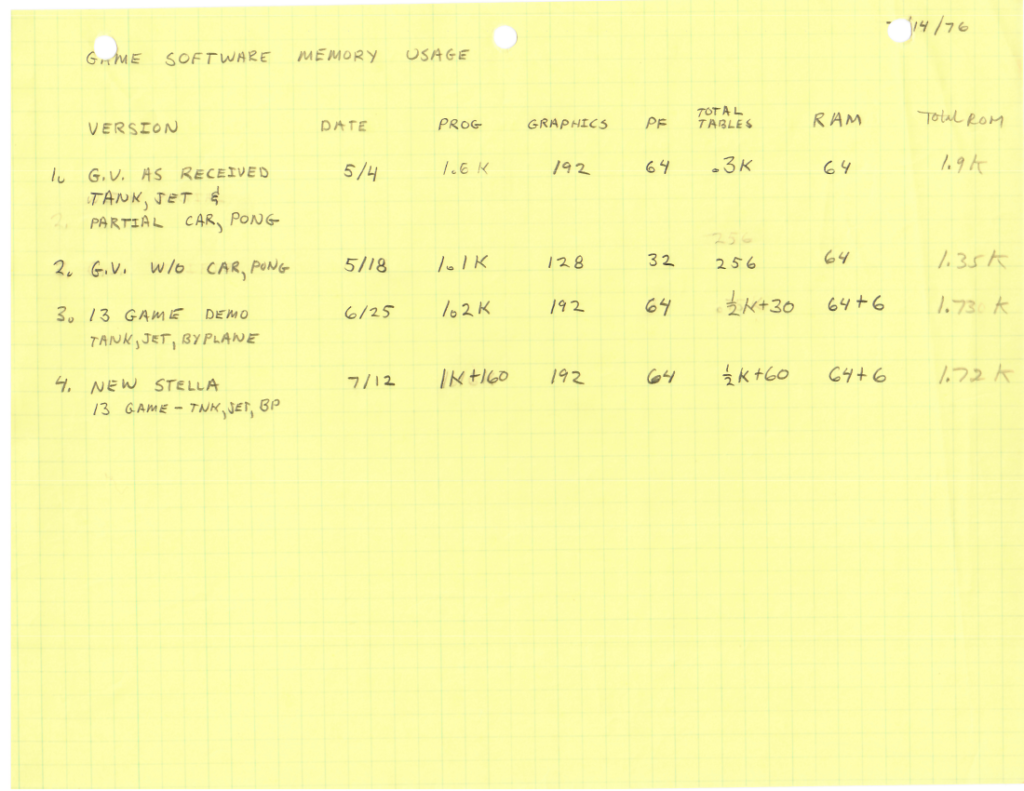 14/76
GAME SOFTWARE MEMORY USAGE
VERSION DATE PROG GRAPHICS PF TOTAL TABLES RAM Total ROM
1. G.V. AS RECEIVED 5/4 1.6K 192 64 .3K 64 1.9K
TANK, JET &
PARTIAL CAR, PONG
256
2. G.V. W/O CAR, PONG 5/18 1.1K 128 32 256 64 1.35K
3. 13 GAME DEMO 6/25 1.2K 192 64 ½K+30 64+6 1.73 K
TANK, JET, BYPLANE
4. NEW STELLA 7/12 1K+160 192 64 ½K+60 64+6 1.72 K
13 GAME - TNK, JET, BP